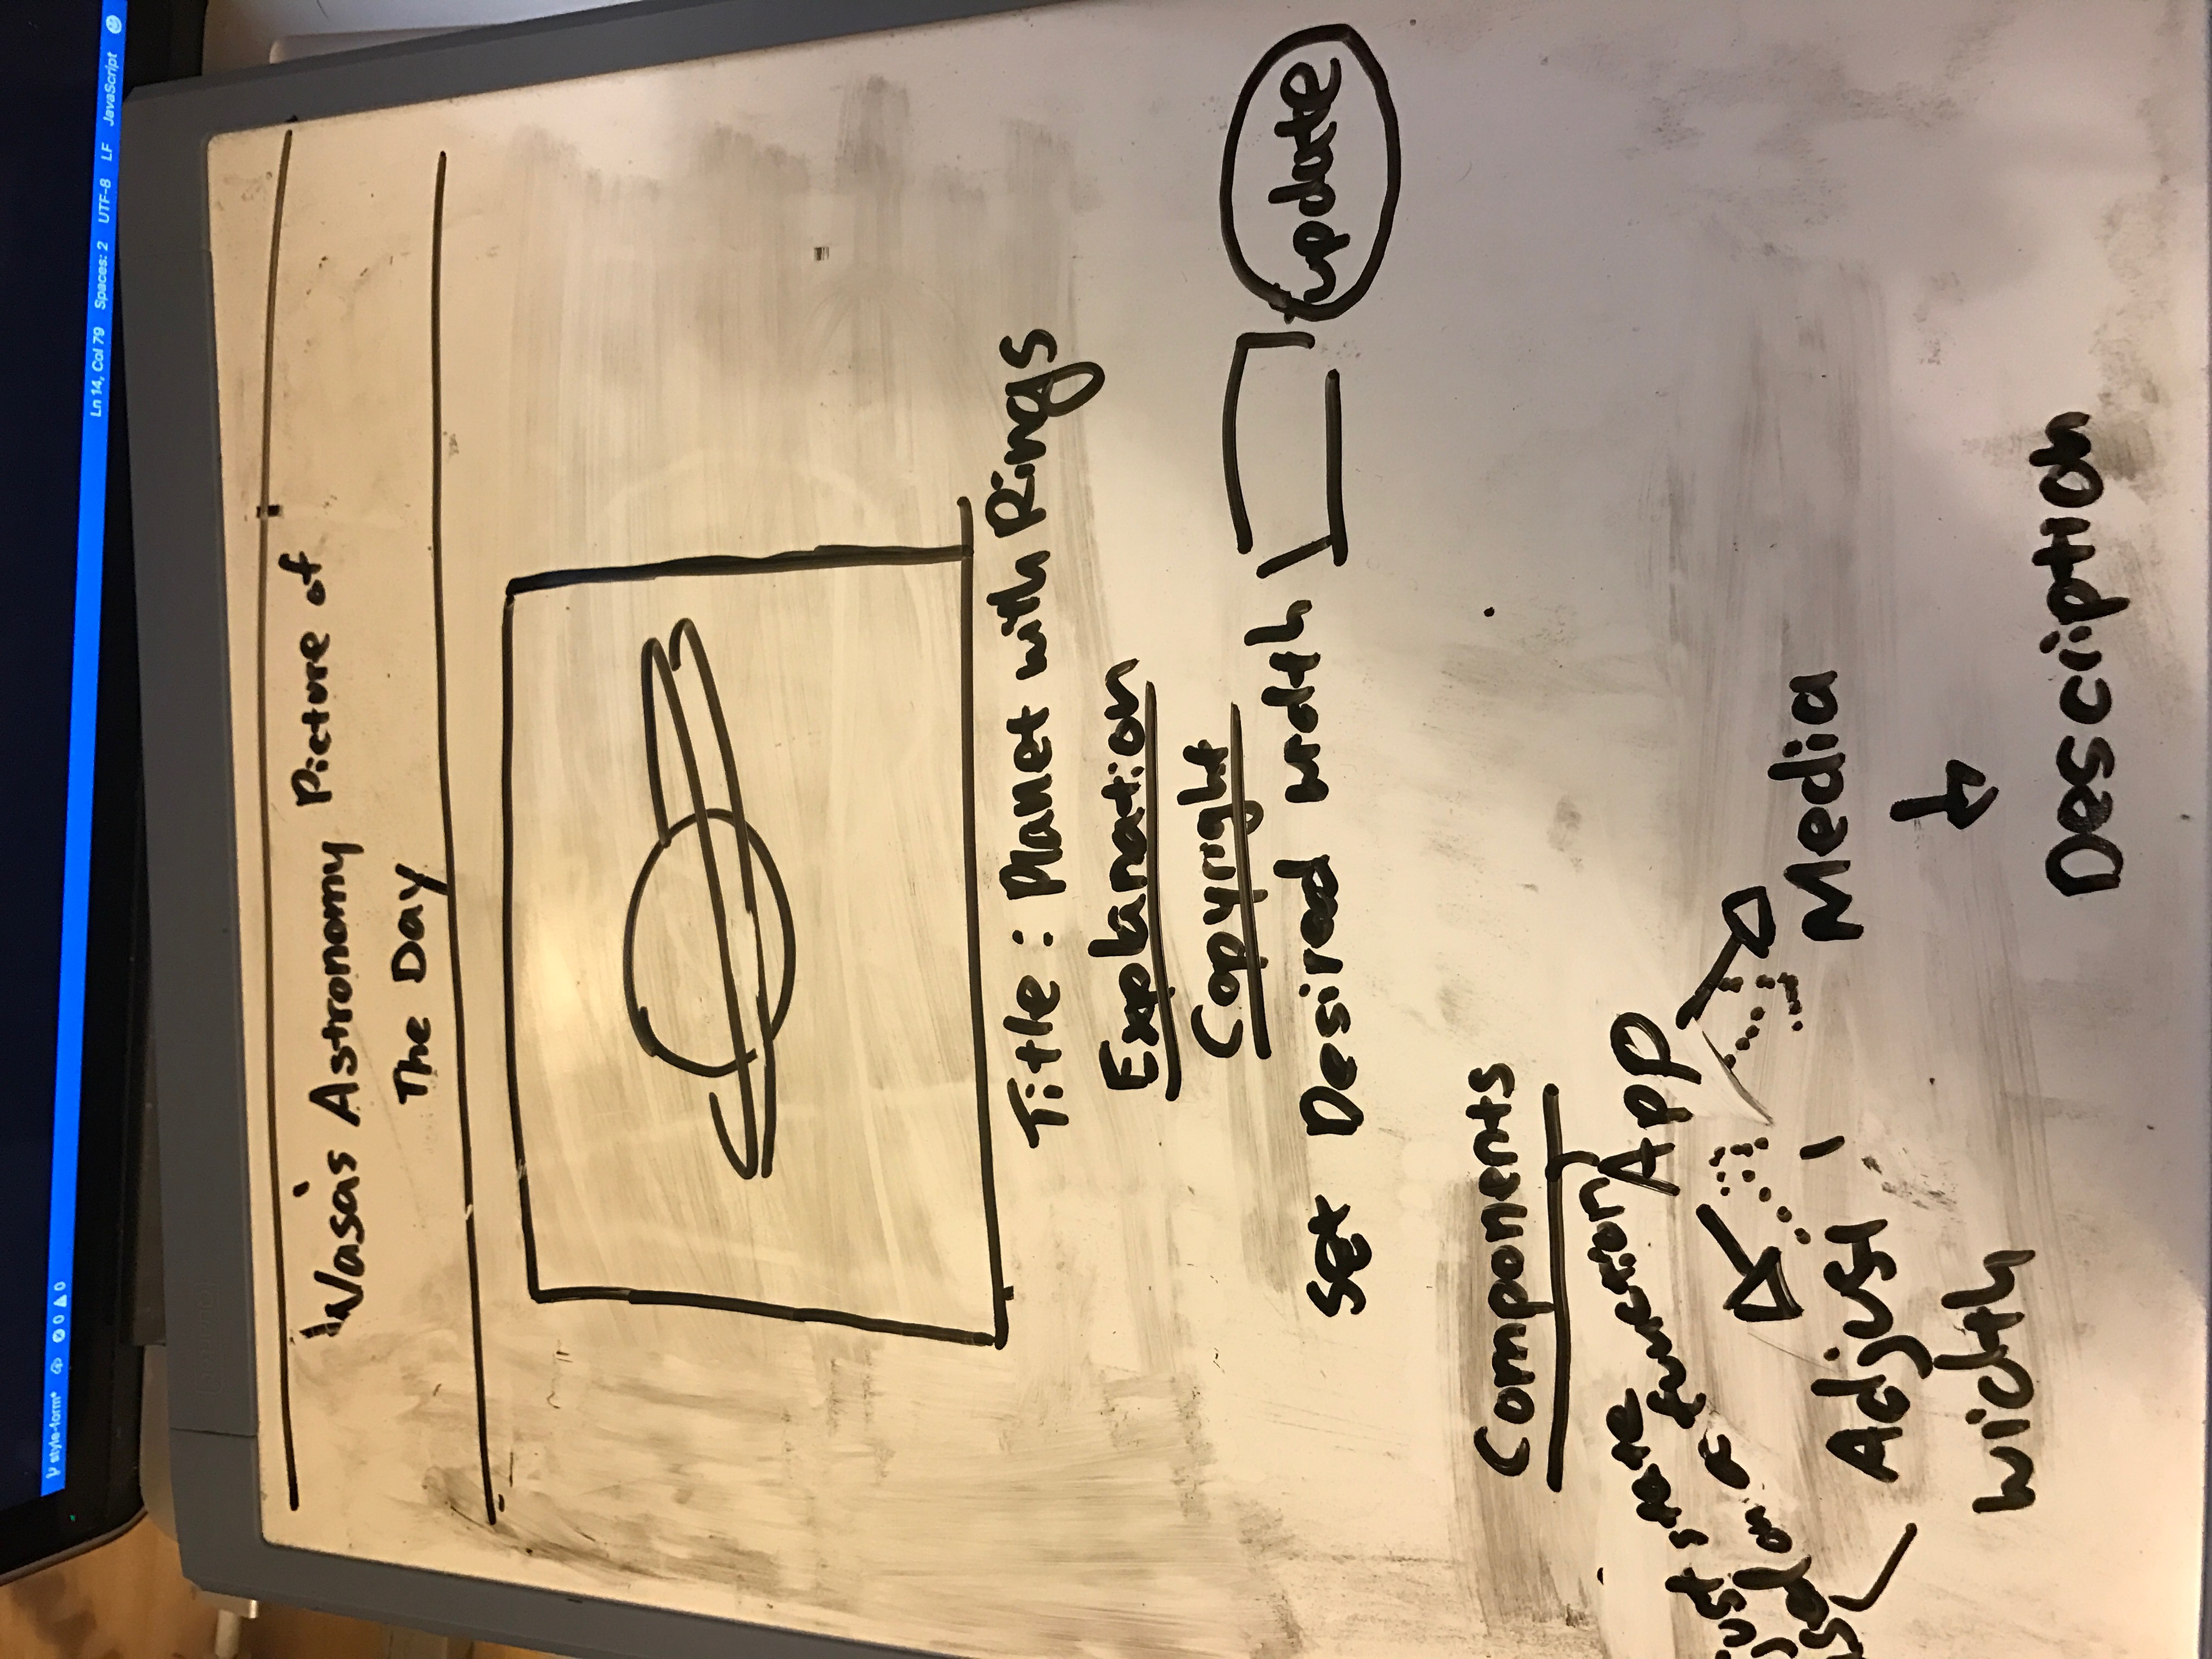 style-form* 0 0
Ln 14, Col 79 Spaces: 2 UTF-8 LF JavaScript
Nasa's Astronomy Picture of
The Day
Title: Planet with Rings
Explanation
Copyright
Set Desired width update
Components
just state
sed on a function
App
Adjust
width
Media
Description